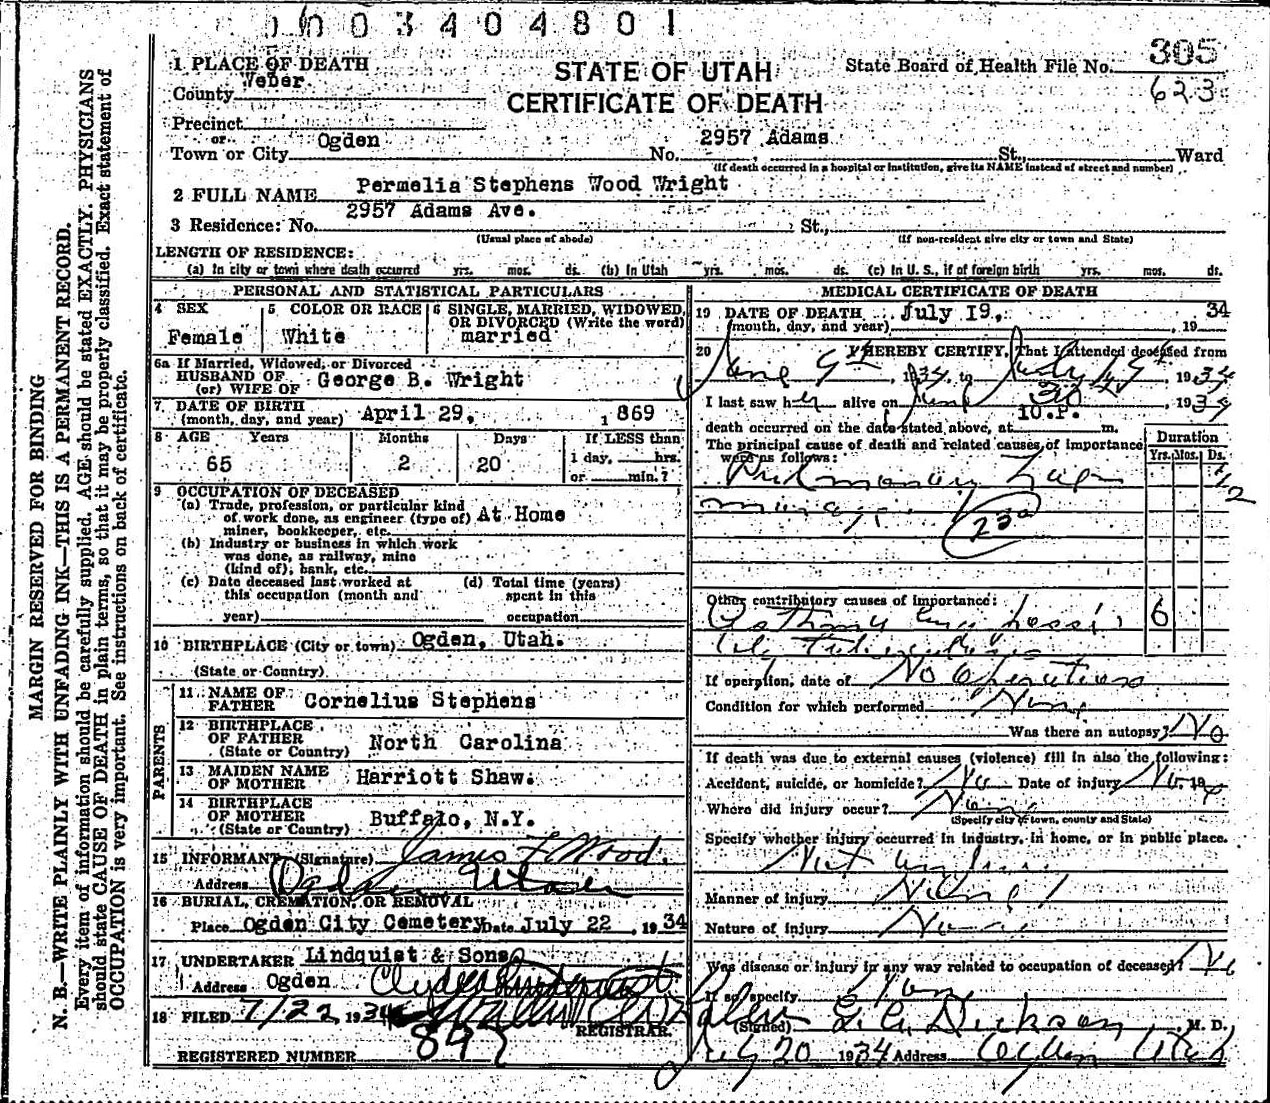 0003404801
1 PLACE OF DEATH
County Weber
Precinct
or
Town or City Ogden
STATE OF UTAH
CERTIFICATE OF DEATH
State Board of Health File No. 305
623
No. 2957 Adams St., Ward
(If death occurred in a hospital or institution, give its NAME instead of street and number)
2 FULL NAME Permelia Stephens Wood Wright
3 Residence: No. 2957 Adams Ave. St.,
(Usual place of abode) (If non-resident give city or town and State)
LENGTH OF RESIDENCE:
(a) In city or town where death occurred yrs. mos. ds. (b) In Utah yrs. mos. ds. (c) In U. S., if of foreign birth yrs. mos. ds.
PERSONAL AND STATISTICAL PARTICULARS
4 SEX Female
5 COLOR OR RACE White
6 SINGLE, MARRIED, WIDOWED, OR DIVORCED (Write the word) married
6a If Married, Widowed, or Divorced
HUSBAND OF
(or) WIFE OF George B. Wright
7. DATE OF BIRTH
(month, day, and year) April 29, 1869
8 AGE Years Months Days If LESS than
65 2 20 1 day, hrs.
or min.?
9 OCCUPATION OF DECEASED
(a) Trade, profession, or particular kind
of work done, as engineer (type of) At Home
miner, bookkeeper, etc.
(b) Industry or business in which work
was done, as railway, mine
(kind of), bank, etc.
(c) Date deceased last worked at (d) Total time (years)
this occupation (month and spent in this
year) occupation
10 BIRTHPLACE (City or town) Ogden, Utah.
(State or Country)
PARENTS
11 NAME OF
FATHER Cornelius Stephens
12 BIRTHPLACE
OF FATHER North Carolina
(State or Country)
13 MAIDEN NAME
OF MOTHER Harriott Shaw.
14 BIRTHPLACE
OF MOTHER Buffalo, N.Y.
(State or Country)
15 INFORMANT (Signature) James F Wood.
Address Ogden Utah
16 BURIAL, CREMATION, OR REMOVAL
Place Ogden City Cemetery Date July 22, 1934
17 UNDERTAKER Lindquist & Sons
Address Ogden
18 FILED 7/22 1934
REGISTRAR.
REGISTERED NUMBER
MEDICAL CERTIFICATE OF DEATH
19 DATE OF DEATH July 19, 1934
(month, day, and year)
20 I HEREBY CERTIFY, That I attended deceased from
June 9th 1934, to July 19th, 1934
I last saw her alive on June 30, 1934
death occurred on the date stated above, at 10.P. m.
The principal cause of death and related causes of importance
were as follows:
Duration
Yrs. Mos. Ds.
Pulmonary
1/2
Other contributory causes of importance:
Asthma 6
Tuberculosis
If operation, date of No Operation
Condition for which performed None
Was there an autopsy? No
If death was due to external causes (violence) fill in also the following:
Accident, suicide, or homicide? No Date of injury No. 19
Where did injury occur?
(Specify city or town, county and State)
Specify whether injury occurred in industry, in home, or in public place.
Manner of injury
Nature of injury
Was disease or injury in any way related to occupation of deceased? No
If so, specify
(Signed) Dickson M. D.
July 20 1934 Address Ogden Utah
MARGIN RESERVED FOR BINDING
N. B.—WRITE PLAINLY WITH UNFADING INK—THIS IS A PERMANENT RECORD.
Every item of information should be carefully supplied. AGE should be stated EXACTLY. PHYSICIANS
should state CAUSE OF DEATH in plain terms, so that it may be properly classified. Exact statement of
OCCUPATION is very important. See instructions on back of certificate.